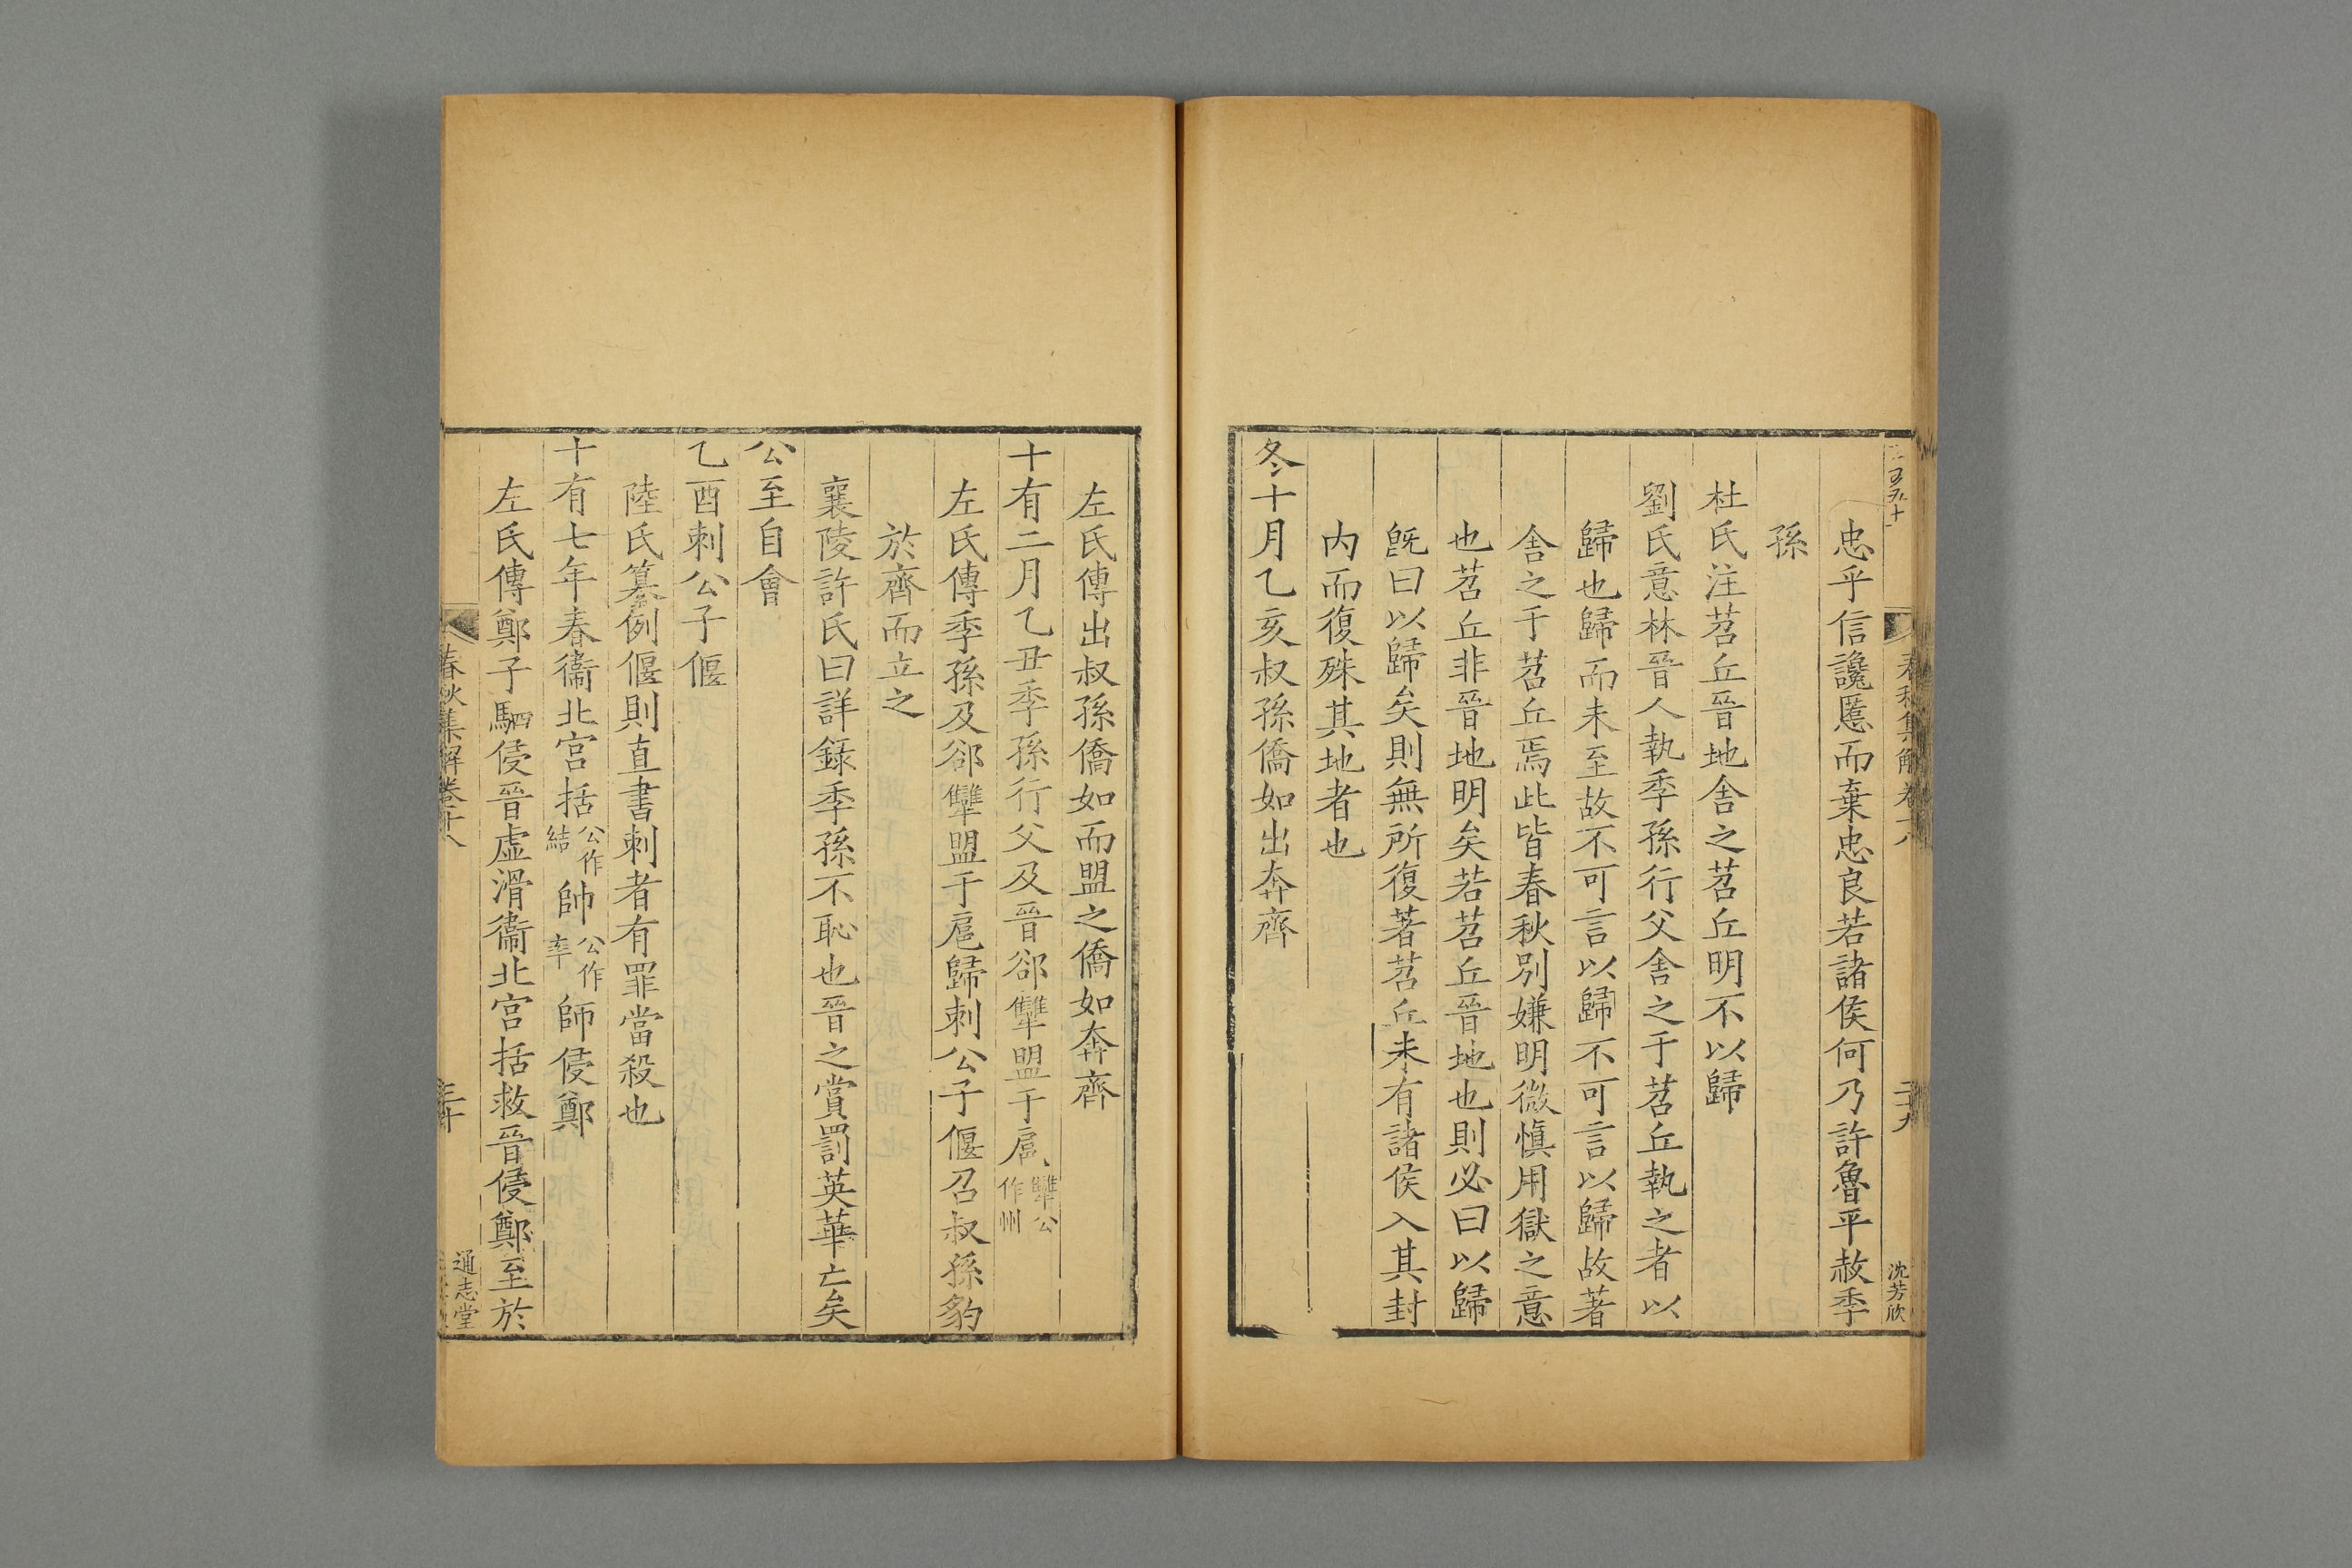 忠乎信讒慝而棄忠良若諸侯何乃許魯平赦季
孫
杜氏注苕丘晉地舍之苕丘明不以歸
劉氏意林晉人執季孫行父舍之于苕丘執之者以
歸也歸而未至故不可言以歸不可言以歸故著
舍之于苕丘焉此皆春秋別嫌明微慎用獄之意
也苕丘非晉地明矣若苕丘晉地也則必曰以歸
旣曰以歸矣則無所復著苕丘未有諸侯入其封
内而復殊其地者也
冬十月乙亥叔孫僑如出奔齊
沈芳欣
左氏傳出叔孫僑如而盟之僑如奔齊
十有二月乙丑季孫行父及晉郤犫盟于扈犫公作州
左氏傳季孫及郤犫盟于扈歸刺公子偃召叔孫豹
於齊而立之
襄陵許氏曰詳錄季孫不恥也晉之賞罰英華亡矣
公至自會
乙酉刺公子偃
陸氏纂例偃則直書刺者有罪當殺也
十有七年春衞北宮括公作結帥公作率師侵鄭
左氏傳鄭子駟侵晉虛滑衞北宮括救晉侵鄭至於
春秋集解卷十八
三十
通志堂